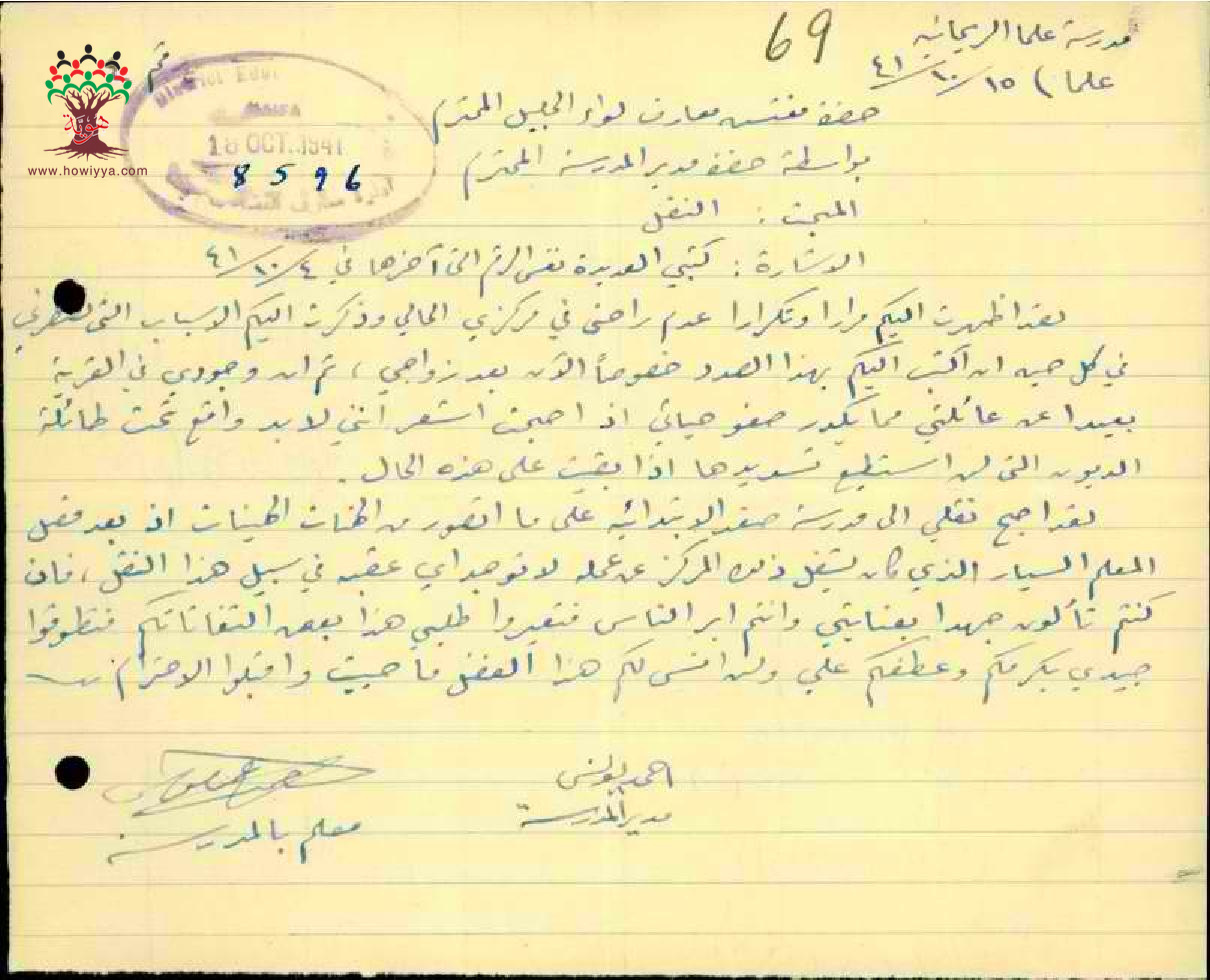 69
مدرسة علما الريحانيه
علما) ١٥/١٠/٤١
District Educ
HAIFA
18 OCT. 1941
8596
هوية
www.howiyya.com
حضرة مفتش معارف لواء الجليل المحترم
بواسطة حضرة مدير المدرسة المحترم
المبحث: النقل
الاشارة: كتبي العديدة نفس الرقم التي آخرها في ٤/١٠/٤١
لقد اظهرت اليكم مرارا وتكرارا عدم راحتي في مركزي الحالي وذكرت اليكم الاسباب التي تضطرني
في كل حين ان اكتب اليكم بهذا الصدد خصوصاً الآن بعد زواجي، ثم ان وجودي في القرية
بعيدا عن عائلتي مما يكدر صفو حياتي اذ اصبحت اشعر انني لا بد واقع تحت طائلة
الديون التي لن استطيع تسديدها اذا بقيت على هذه الحال.
لقد اصبح نقلي الى مدرسة صفد الابتدائيه على ما اتصور من الهنات الهينات اذ بعد فصل
المعلم السيار الذي كان يشغل ذلك المركز عن عمله لا توجد اي عقبه في سبيل هذا النقل، فان
كنتم تألون جهدا بعنايتي وانتم ابر الناس فتعيروا طلبي هذا بعض التفاتاتكم فتطوقوا
جيدي بكرمكم وعطفكم علي ولن انسى لكم هذا الفضل ما حييت واقبلوا الاحترام
احمد يونس
مدير المدرسة
معلم بالمدرسة